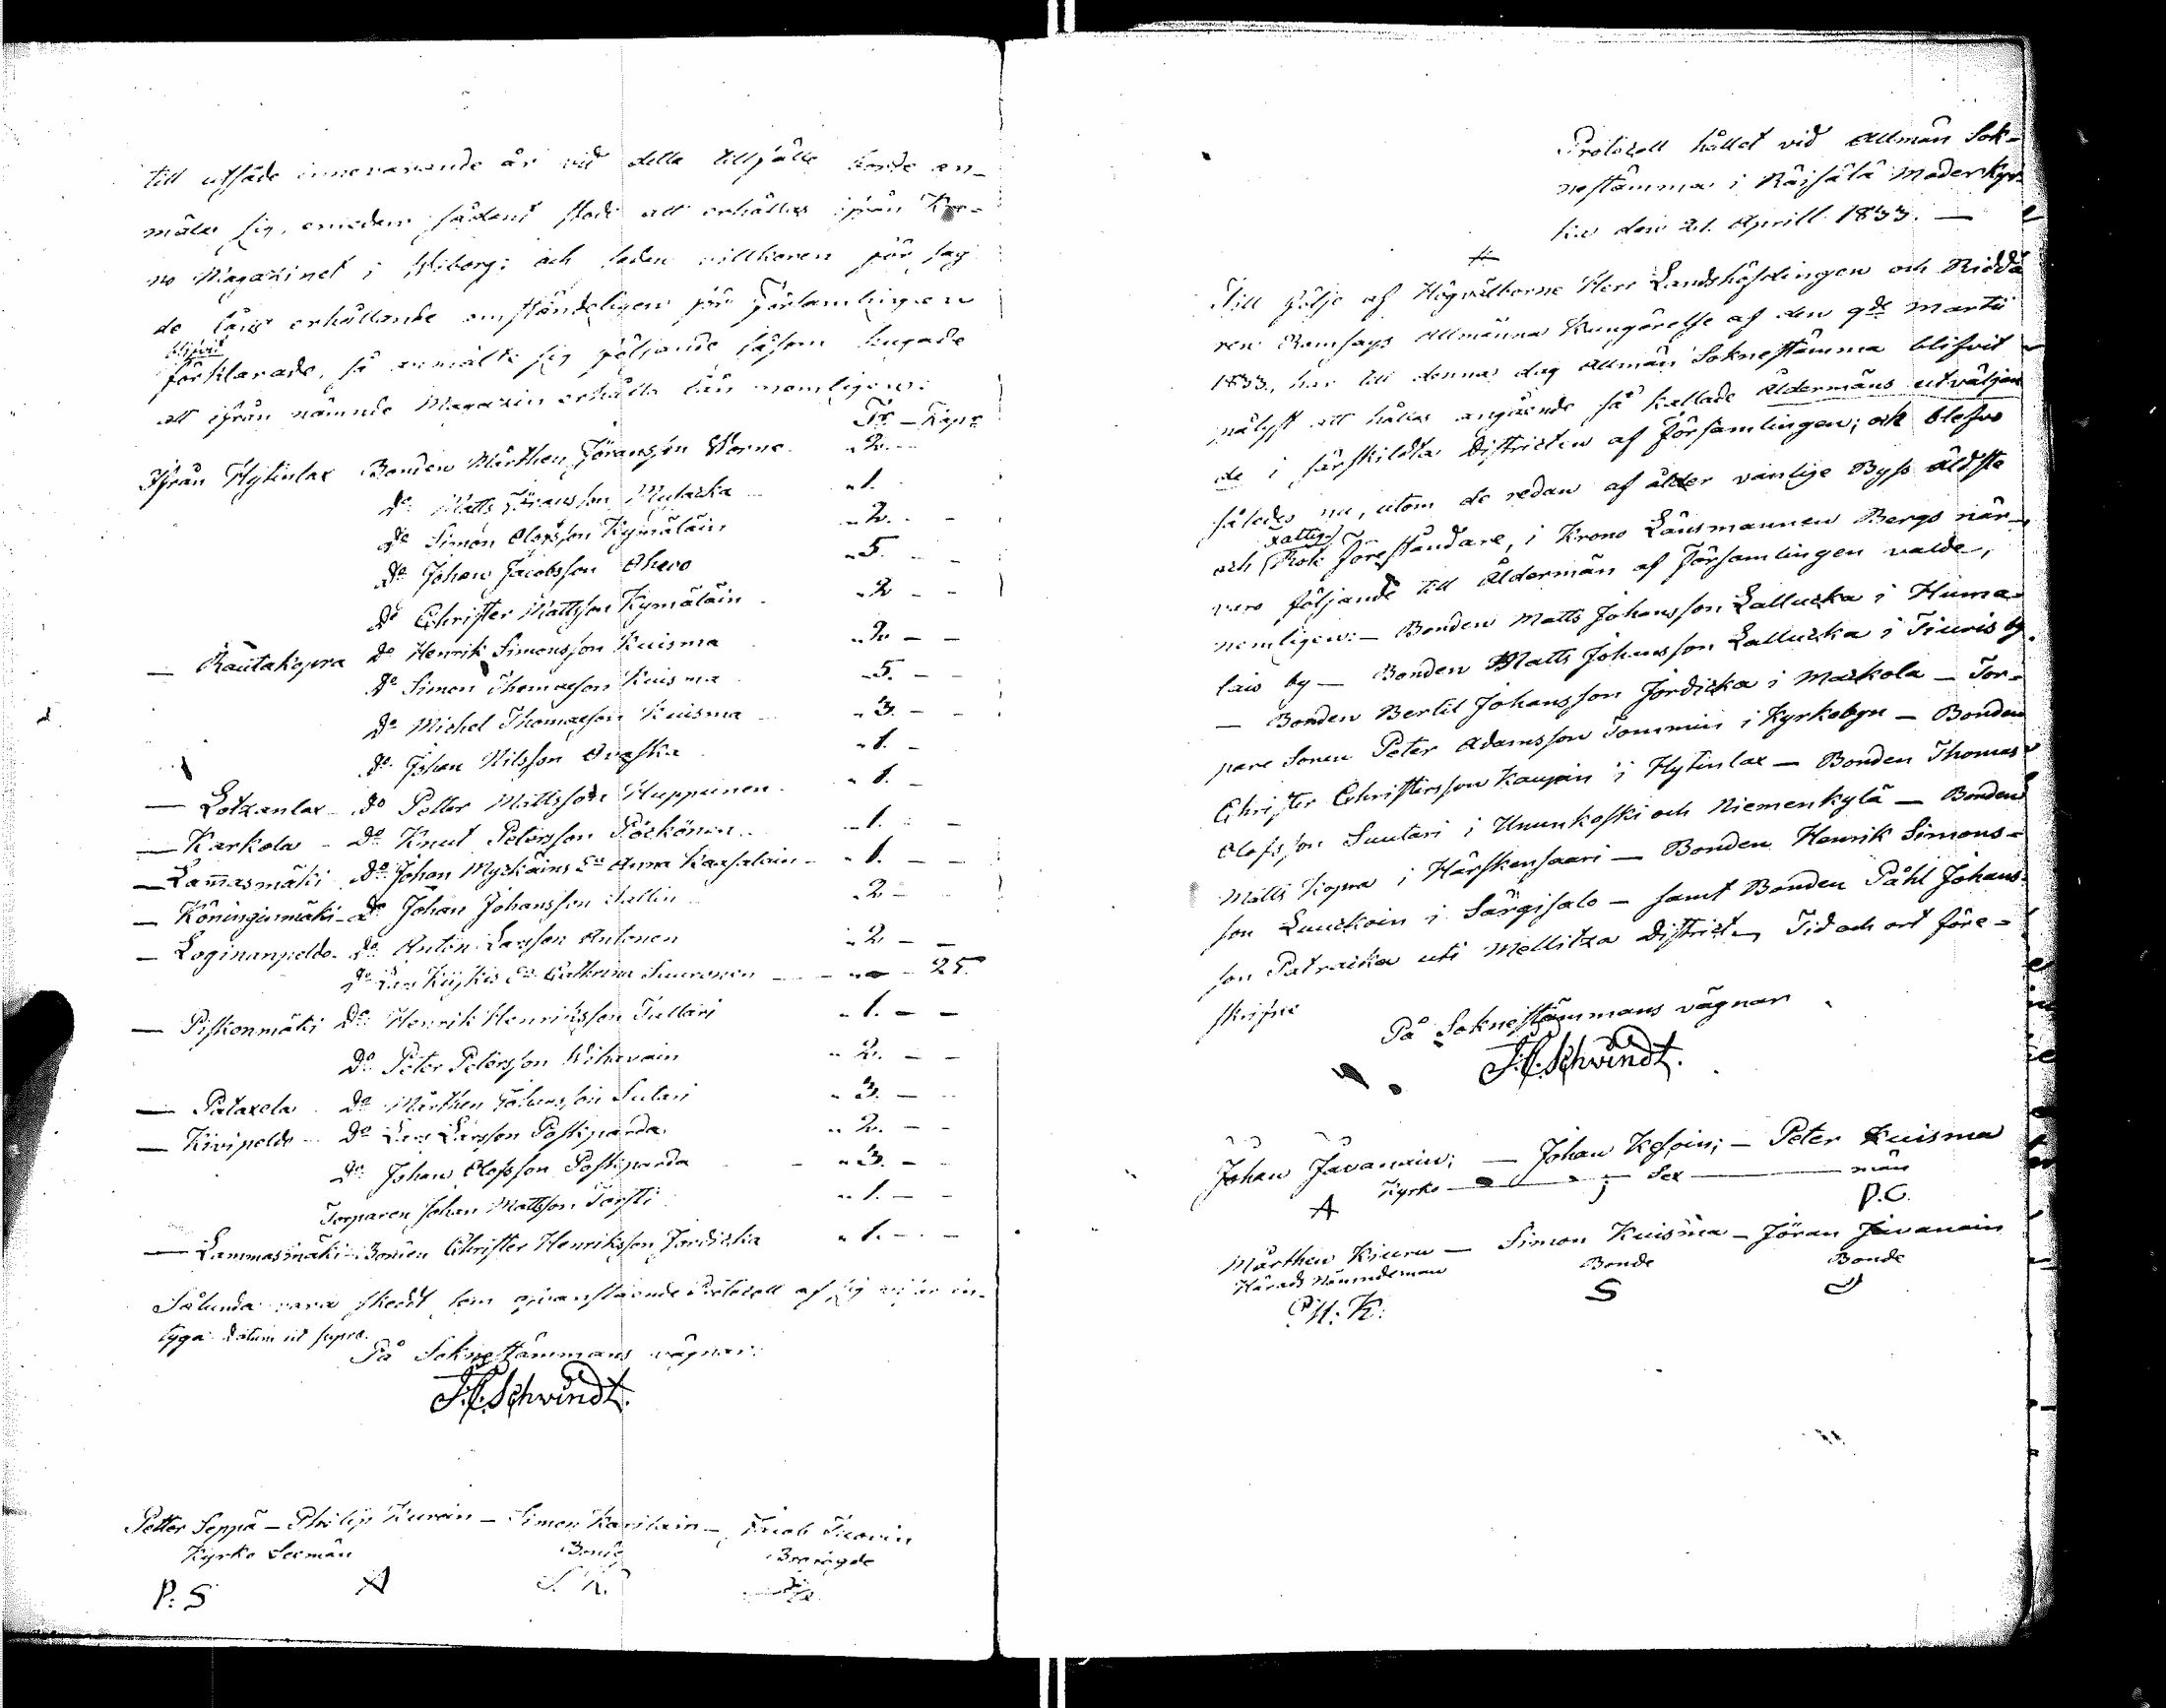 till utsäde innevarande år vid detta tillfälle borde an-
mäla sig, emedan sådant stode att erhållas ifrån Kro-
no Magazinet i Wiborg; och sedan villkoren för sag
de låns erhållande omständeligen för Församlingen
blifvit
förklarade, så anmälte sig följande såsom hugade
att ifrån nämnde Magazin erhålla lån nemligen:
Tr. – Kapr
Ifrån Hytinlax Bonden Mårthen Jöransson Worne „ 2. –
do Matts Jöransson Mulacka „ 1.
do Simon Olofsson Kymäläin „ 2. –
do Johan Jacobsson Ahvo „ 5. –
do Christer Mattsson Kymäläin „ 2 – –
— Rautakopra do Henrik Simonsson Kuisma „ 2. – –
do Simon Thomasson Kuisma „ 5. – –
do Michel Thomasson Kuisma „ 3. – –
do Johan Nilsson Avaska „ 1. –
— Lotzanlax – do Petter Mattsson Huppunen „ 1. –
— Karkola – do Knut Petersson Pöckönen „ 1. – –
— Lam̄asmäki do Johan Myckäins Ea Anna Kaasalain „ 1. – –
— Köninginmäki – do Johan Johansson Hallin „ 2 –
— Loginanpeldo – do Antin Larsson Antonen „ 2 – –
do Lars Kiiskis Ea Cathrina Suuronen – – – 25.
— Piskonmäki do Henrik Henriksson Tullari „ 1. – –
do Peter Petersson Wihavain „ 2. – –
— Pataxela do Mårthen Johansson Sutari „ 3. –
— Kivipeldo – do Lars Larsson Poskiparda „ 2. – –
do Johan Olofsson Poskiparda „ 3. –
Torparen Johan Mattsson Torsti „ 1. – –
— Lammasmäki – Bonden Christer Henriksson Jordicka „ 1. – –
Sålunda vara skedt som ofvanstående Protocoll utvisar in-
tyga Datum ut supra.
På Soknestämmans vägnar:
J.H. Schvindt.
Petter Seppä – Philip Kurvin – Simon Karilain – Jacob Tuovin
Kyrko Sexmän Bonde Brovogde
P: S A S. K.
Protocoll hållet vid Allmän Sok-
nestämma i Räisälä Moderkyr-
ka den 21. Aprill 1833. —
Till följe af Högvälborne Herr Landshöfdingen och Ridda
ren Ramsays Allmänna Kungörelse af den 9de Martii
1833, har till denna dag allmän Soknestämma blifvit
pålyst att hållas angående så kallade Åldermäns utväljan
de i särskildta Districten af Församlingen; och blefvo
således nu, utom de redan af ålder vanlige Bys äldste
Fattig
och Rote Föreståndare, i Krono Länsmannen Bergs när-
varo följande till Åldermän af Församlingen valde,
nemligen: – Bonden Matts Johansson Lallucka i Huma-
lais by — Bonden Matts Johansson Lallucka i Tiuris by.
— Bonden Bertil Johansson Jordicka i Mackola — Tor-
pare Sonen Peter Adamsson Tommin i Kyrkobyn — Bonden
Christer Christersson Kaupin i Hytinlax — Bonden Thomas
Olofsson Suutari i Unnunkoski och Niemenkylä — Bonden
Matts Kopra i Härskensaari — Bonden Henrik Simons-
son Lauckoin i Särgisalo — samt Bonden Påhl Johans-
son Patracka uti Mellitza District — Tid och ort före-
skrifne
På Soknestämmans vägnar
J.H. Schvindt.
Johan Javanain; — Johan Kesoin; — Peter Kuisma
Kyrko — Sex — män
A J P.C.
Mårthen Kiuru — Simon Kuisma — Jöran Javanain
Härads Nämndeman Bonde Bonde
M: K: S J